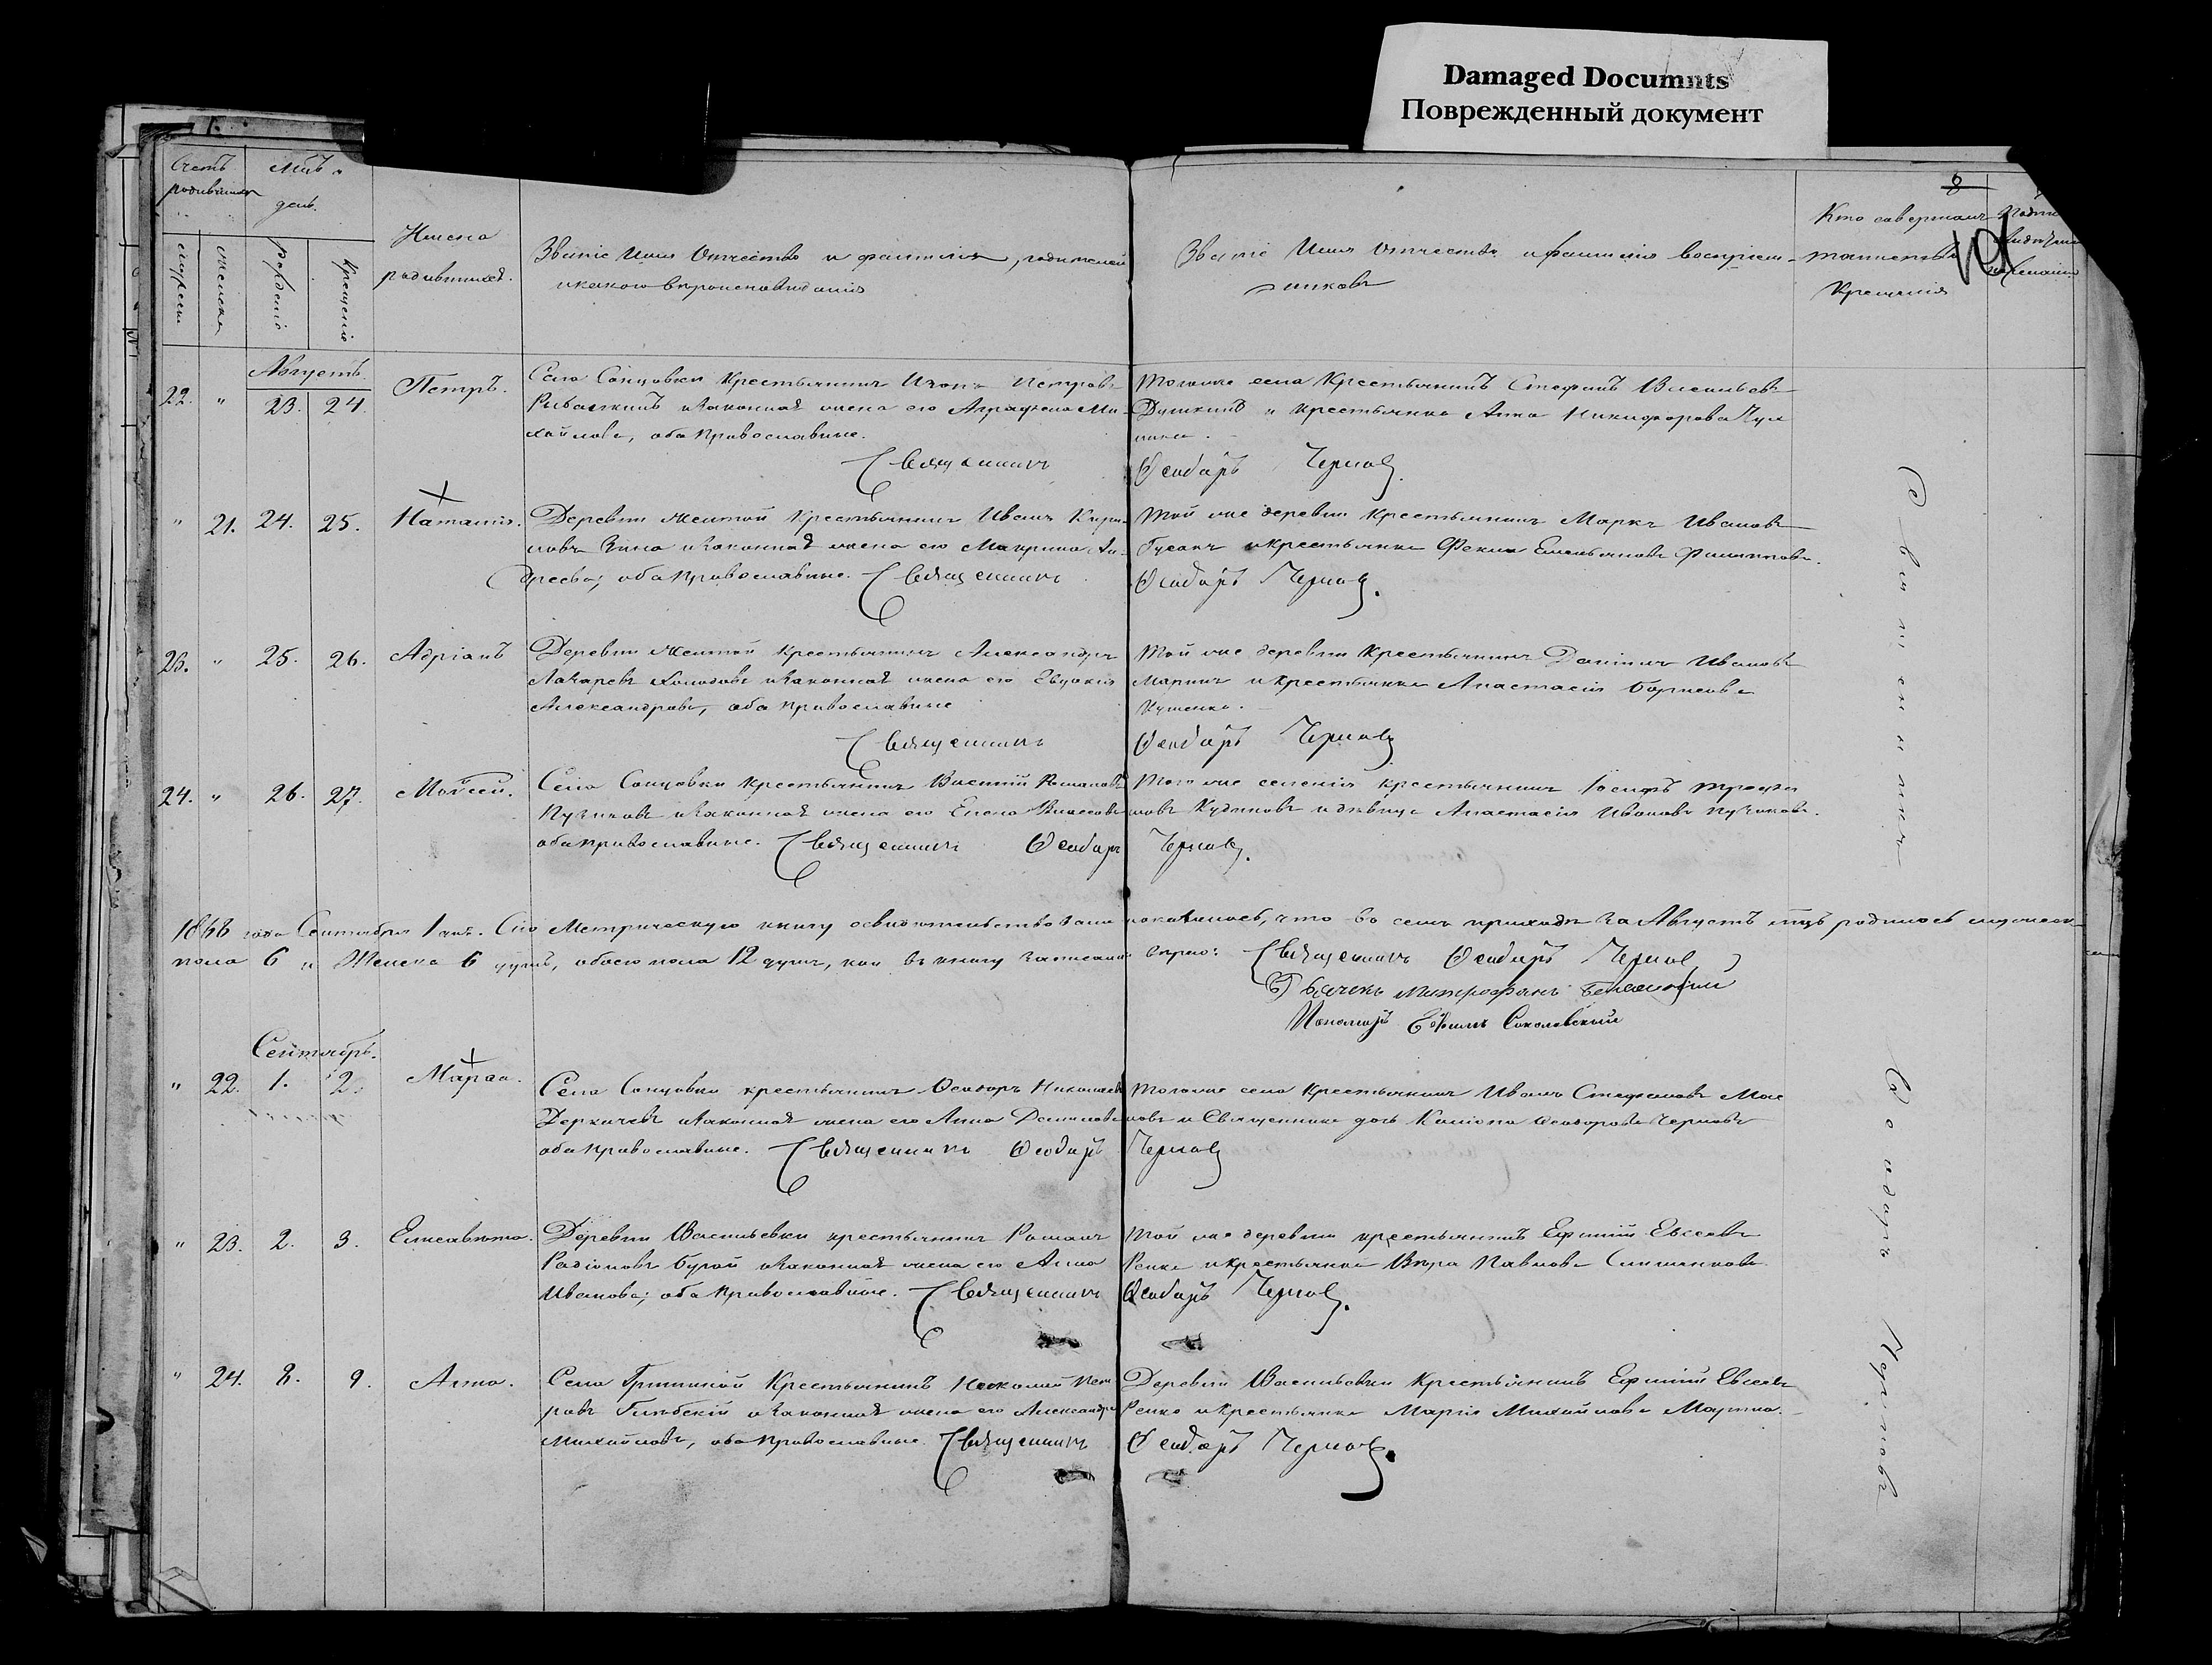 Damaged Documnts
Поврежденный документ
8
Счетъ родившихся
Мцъ и день.
мужеска
женска
рожденія
крещенія
Имена родившихся.
Званіе Имя Отчество и фамилія родителей
и какого вѣроисповѣданія
Званіе Имя Отчество и фамилія воспріем-
никовъ
Кто совершалъ
таинство
Крещенія
Августъ.
22. " 23. 24. Петръ.
Села Сонцовки Крестьянинъ Петровъ
и законная жена его Ми-
хайлова, оба православные.
Священникъ
тогоже села Крестьянинъ Стефанъ Васильевъ
и крестьянка Анна Никифорова
Ѳеодоръ Черновъ.
" 21. 24. 25. Наталія.
Деревни Желтой Крестьянинъ Иванъ Кири-
ловъ и законная жена его Макрина Ан-
дреева, оба православные. Священникъ
Той же деревни Крестьянинъ Маркъ Ивановъ
Гусакъ и крестьянка Фекла Емельянова Филиппова.
Ѳеодоръ Черновъ.
23. " 25. 26. Адріанъ
Деревни Желтой Крестьянинъ Александръ
Лазаревъ Холодовъ и законная жена его Евдокія
Александрова, оба православные
Священникъ
Той же деревни Крестьянинъ Даніилъ Ивановъ
и крестьянка Анастасія Борисова
Ѳеодоръ Черновъ
24. " 26. 27. Мойсей.
Села Сонцовки крестьянинъ Василій Романовъ
Пузиковъ и законная жена его Елена Власова
оба православные. Священникъ Ѳеодоръ
Того же селенія крестьянинъ Іосифъ Трофи
мовъ и дѣвица Анастасія Иванова Пузикова.
Черновъ.
1866 года Сентября 1 дня. Сію Метрическую книгу освидѣтельствовали и оказалось, что въ семъ приходѣ за Августъ мцъ родилось мужеск
пола 6 и Женска 6 душъ, обоего пола 12 душъ, кои въ книгу записаны вѣрно: Священникъ Ѳеодоръ Черновъ
Дьячекъ Митрофанъ
Пономарь Ефимъ Соколовскій
Сентябрь.
" 22. 1. 2. Марѳа.
Села Сонцовки крестьянинъ Ѳеодоръ Николаевъ
Деркачевъ и законная жена его Анна Данилова
оба православные. Священникъ Ѳеодоръ
тогоже села Крестьянинъ Иванъ Стефановъ
и Священника дочь Ѳеодорова Чернова
Черновъ
" 23. 2. 3. Елисавета.
Деревни Васильевки крестьянинъ Романъ
Радіоновъ Бурой и законная жена его Анна
Иванова, оба православные. Священникъ
той же деревни крестьянинъ Ефимій Евсеевъ
Репка и крестьянка Вѣра Павлова
Ѳеодоръ Черновъ.
" 24. 8. 9. Анна.
Села Гришиной Крестьянинъ Пет
ровъ и законная жена его Александра
Михайлова, оба православные. Священникъ
Деревни Васильевки Крестьянинъ Ефимій Евсеевъ
Репка и крестьянка Марія Михайлова
Ѳеодоръ Черновъ.
Священникъ
Ѳеодоръ Черновъ